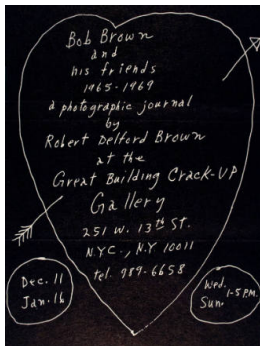 Bob Brown
and
his friends
1965-1969
a photographic journal
by
Robert Delford Brown
at the
Great Building Crack-UP
Gallery
251 W. 13th ST.
N.Y.C., N.Y 10011
tel. 989-6658
Dec. 11
Jan. 16
Wed.
1-5 P.M.
Sun.